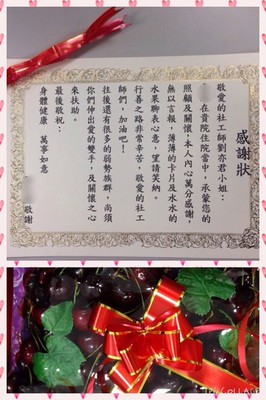 感謝狀
敬愛的社工師劉亦君小姐：
在貴院住院當中，承蒙您的
照顧及關懷！本人內心萬分感謝，
無以言報，薄薄的卡片及水水的
水果聊表心意，望請笑納。
行善之路非常辛苦，敬愛的社工
師們，加油吧！
往後還有很多的弱勢族群，尚須
你們伸出愛的雙手，及關懷之心
來扶助。
最後敬祝：
身體健康　萬事如意
敬謝